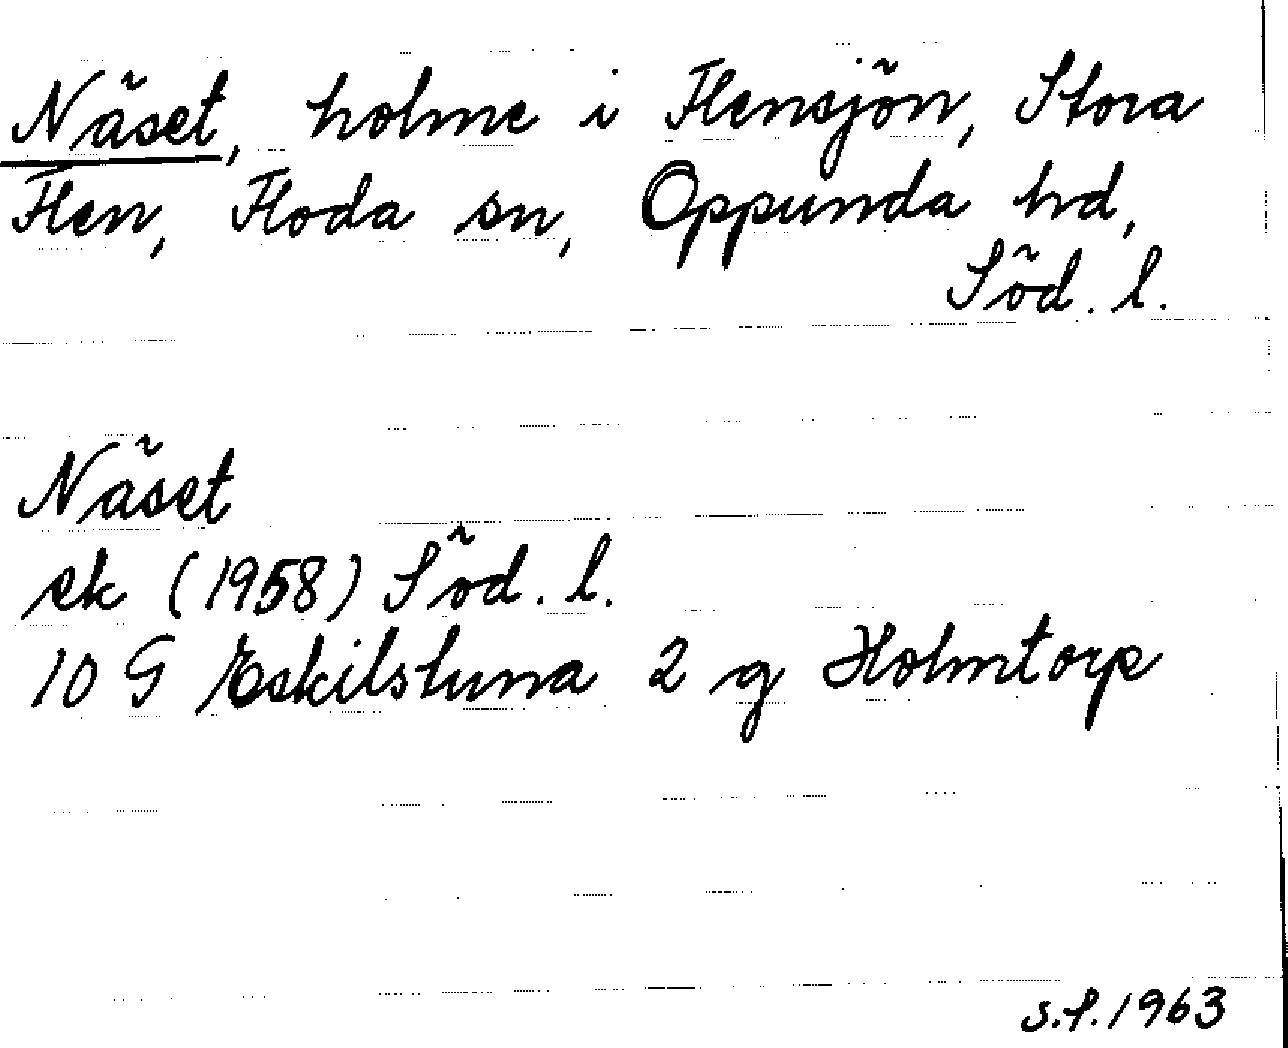 Näset, holme i Flensjön, Stora
Flen, Floda sn, Oppunda hd,
Söd. l.
Näset
ek (1958) Söd. l.
10 G Eskilstuna 2 g Holmtorp
s.f. 1963